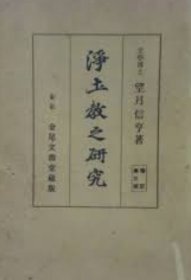 文學博士 望月信亨著
淨土教之研究
金尾文淵堂藏版